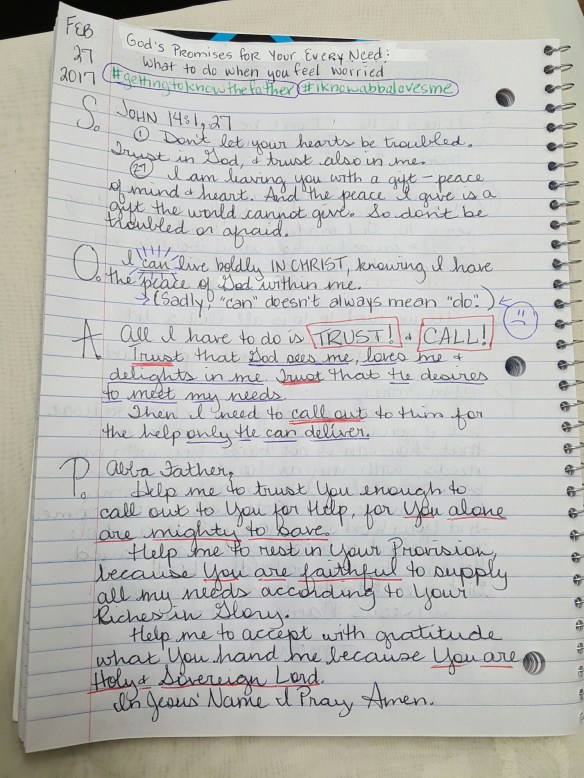 FEB
27
2017
God's Promises for Your Every Need:
What to do when you feel worried
#gettingtoknowthefather #iknowabbalovesme
S. JOHN 14:1, 27
① Don't let your hearts be troubled.
Trust in God, & trust also in me.
㉗ I am leaving you with a gift - peace
of mind & heart. And the peace I give is a
gift the world cannot give. So don't be
troubled or afraid.
O. I can live boldly IN CHRIST, knowing I have
the peace of God within me.
→ (Sadly, "can" doesn't always mean "do".)
A. All I have to do is TRUST! & CALL!
Trust that God sees me, loves me &
delights in me. Trust that He desires
to meet my needs.
Then I need to call out to Him for
the help only He can deliver.
P. Abba Father,
Help me to trust You enough to
call out to You for Help, for You alone
are mighty to save.
Help me to rest in Your Provision,
because You are faithful to supply
all my needs according to Your
Riches in Glory.
Help me to accept with gratitude
what You hand me because You are
Holy & Sovereign Lord.
In Jesus' Name I Pray Amen.